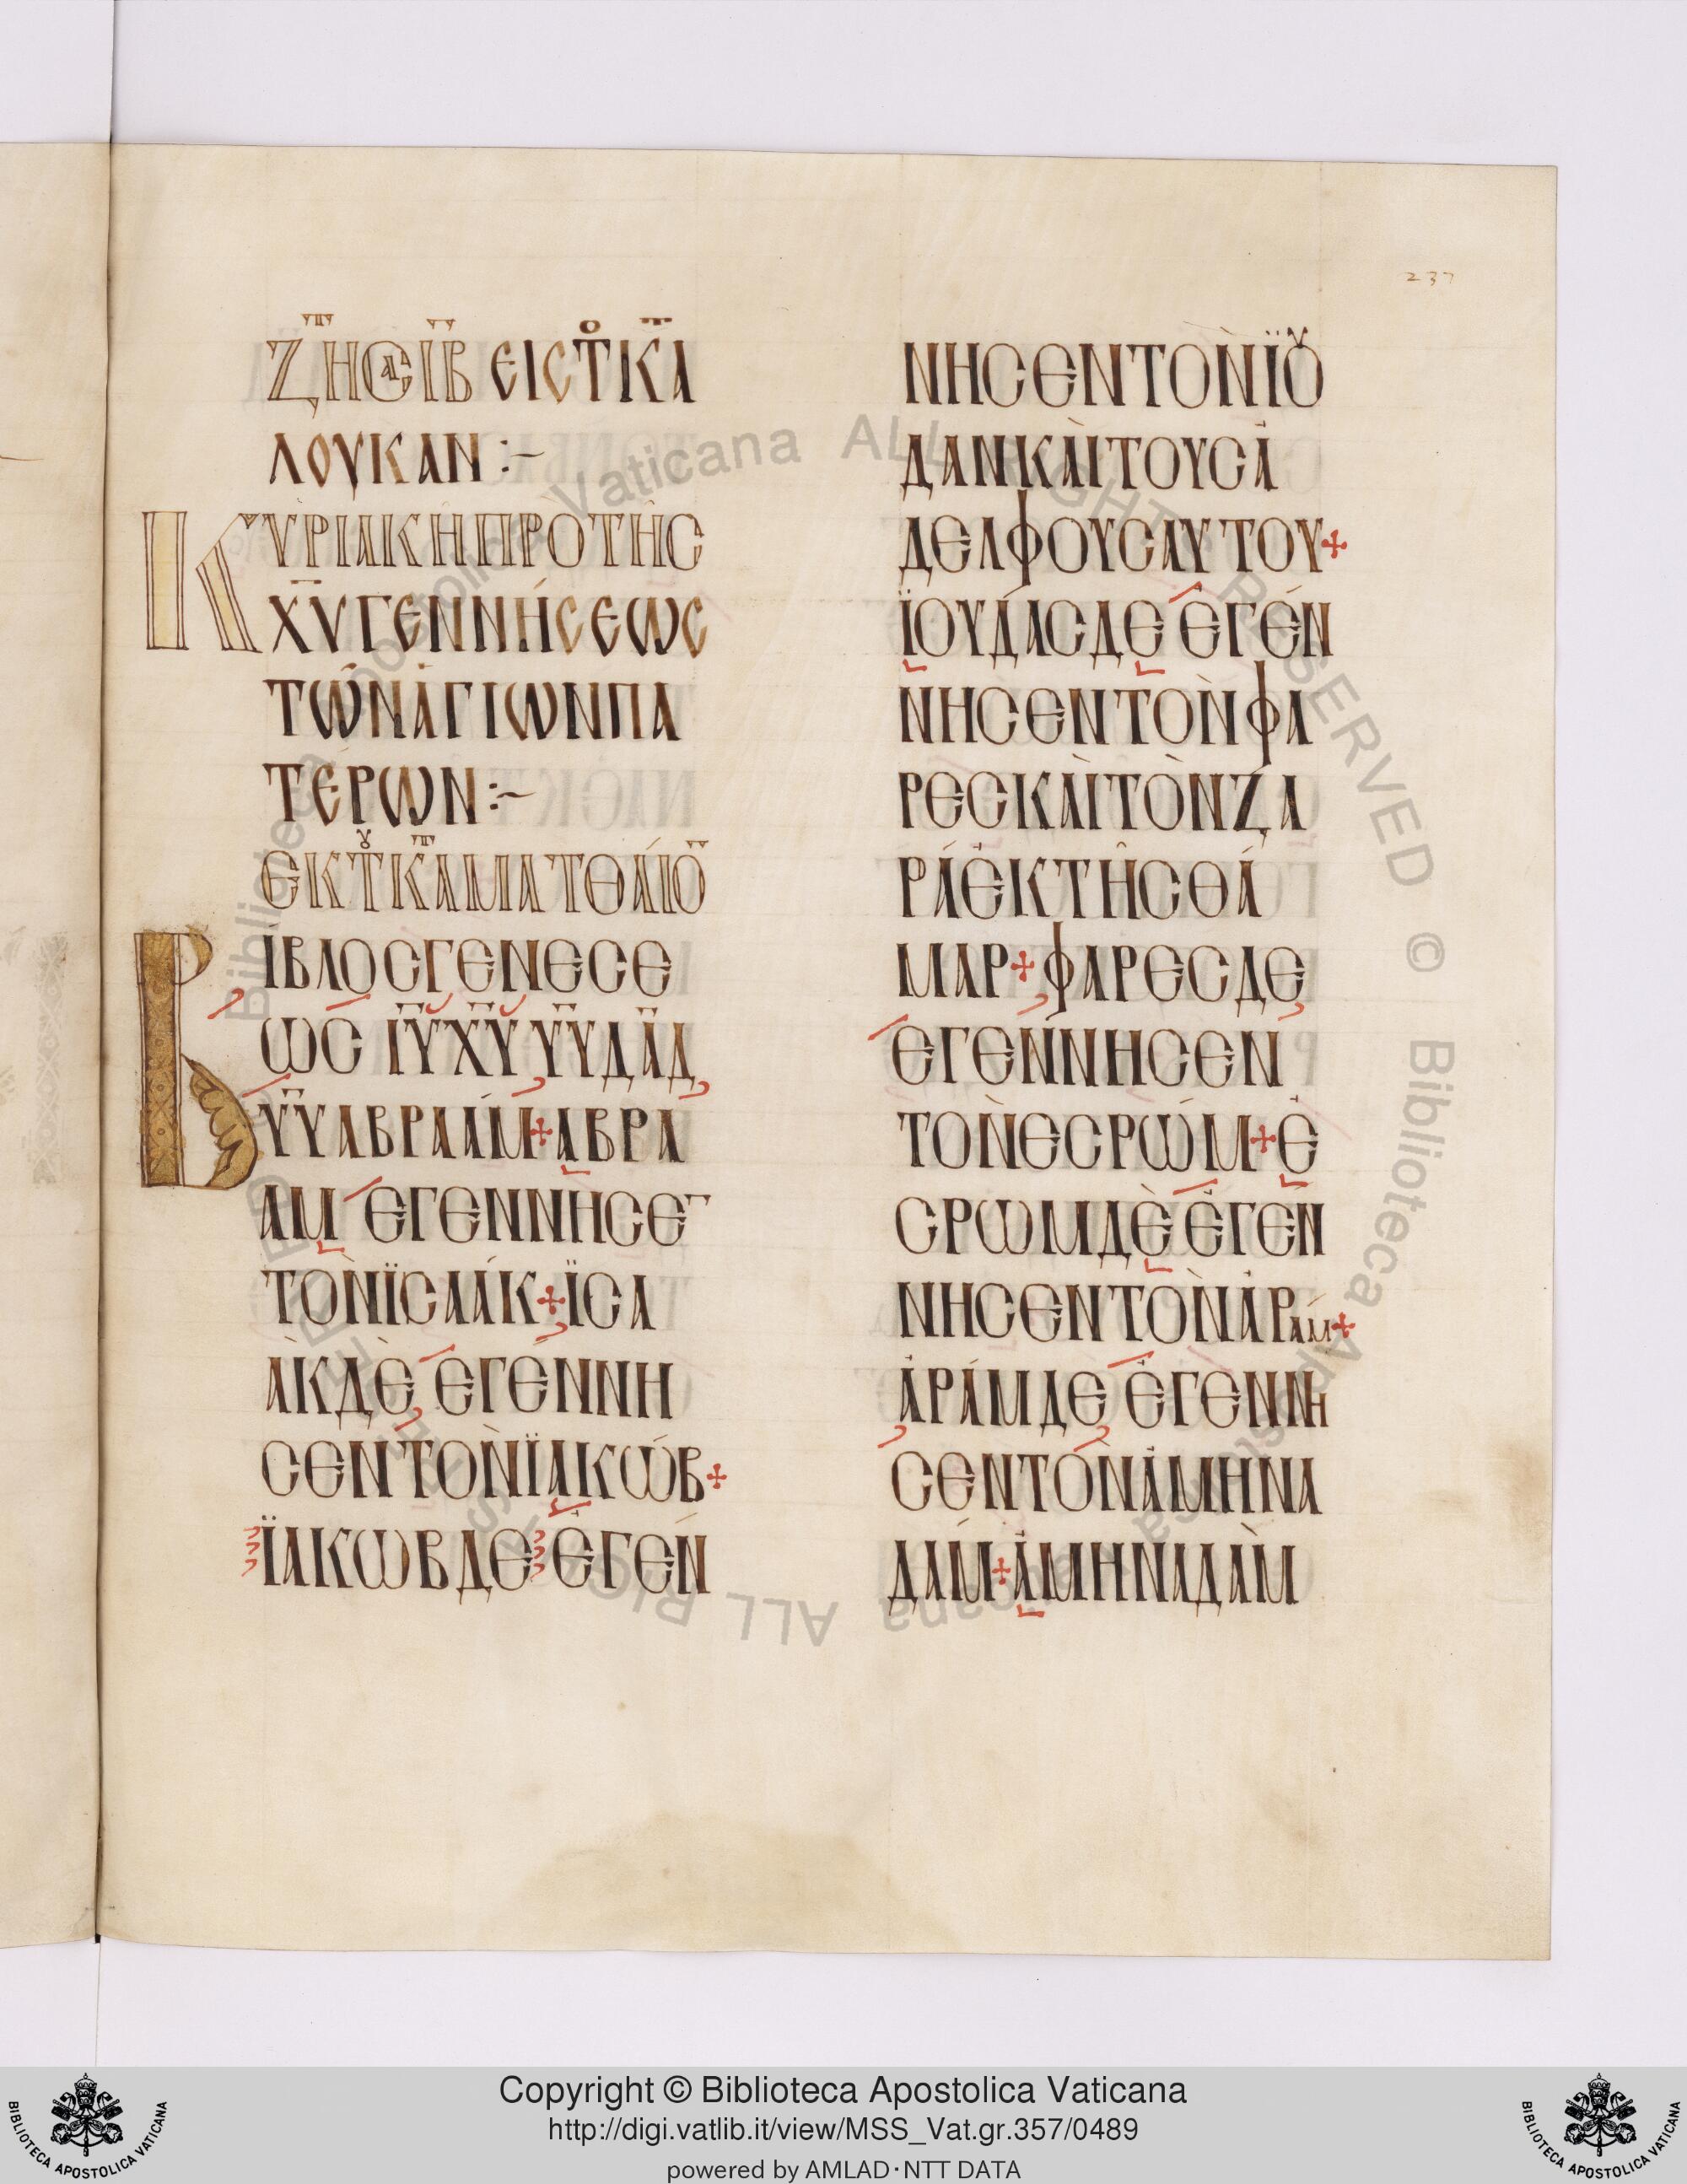 237
Ζ̅Η̅ϹΑΙΒ̅ ЄΙϹΤ̊Κ̅Α
ΛΟΥΚΑΝ :~
ΚΥΡΙΑΚΗΠΡΟΤΗ͂Ϲ
Χ̅Υ̅ΓЄΝΝΉϹЄΩϹ
ΤΩ͂ΝἉΓΙΩΝΠΑ
ΤΈΡΩΝ :~
ЄΚΤ̆Κ̅ΑΜΑΤΘΆΙΟ̅
ΒΙΒΛΟϹΓЄΝЄϹЄ
ΩϹ Ι̅Υ̅Χ̅Υ̅ Υ̅Υ̅Δ̅Α̅Δ̅
Υ̅Υ̅ΑΒΡΑΆΜ+ΑΒΡΑ
ΑΜ ЄΓЄΝΝΗϹЄ¯
ΤῸΝΪϹΑΆΚ+ΪϹΑ
ᾺΚΔЄ̀ ЄΓЄ́ΝΝΗ
ϹЄΝΤῸΝΪΑΚΏΒ+
ΪΑΚΩΒΔЄ ЄΓЄ́Ν
ΝΗϹЄΝΤῸΝΪΟ̆
ΔΑΝΚΑῚΤΟΥϹἈ
ΔЄΛΦΟΥϹΑΥΤΟΥ+
ΪΟΥΔΑϹΔЄ ЄΓЄ́Ν
ΝΗϹЄΝΤῸΝΦΑ
ΡЄϹΚΑῚΤῸΝΖΑ
ΡΆЄΚΤΗ͂ϹΘΆ
ΜΑΡ+ΦΑΡЄϹΔЄ
ЄΓЄΝΝΗϹЄΝ
ΤῸΝЄϹΡΏΜ+Є
ϹΡΩΜΔЄ̀ ЄΓЄ́Ν
ΝΗϹЄΝΤῸΝἈΡΑΜ+
ἈΡΆΜΔЄ ЄΓЄΝΝΗ
ϹЄΝΤῸΝἈΜΗΝΑ
ΔΆΜ+ἈΜΗΝΑΔᾺΜ
Biblioteca Apostolica Vaticana ALL RIGHTS RESERVED © Biblioteca Apostolica Vaticana ALL RIGHTS RESERVED ©
BIBLIOTECA APOSTOLICA VATICANA
Copyright © Biblioteca Apostolica Vaticana
http://digi.vatlib.it/view/MSS_Vat.gr.357/0489
powered by AMLAD·NTT DATA
BIBLIOTECA APOSTOLICA VATICANA